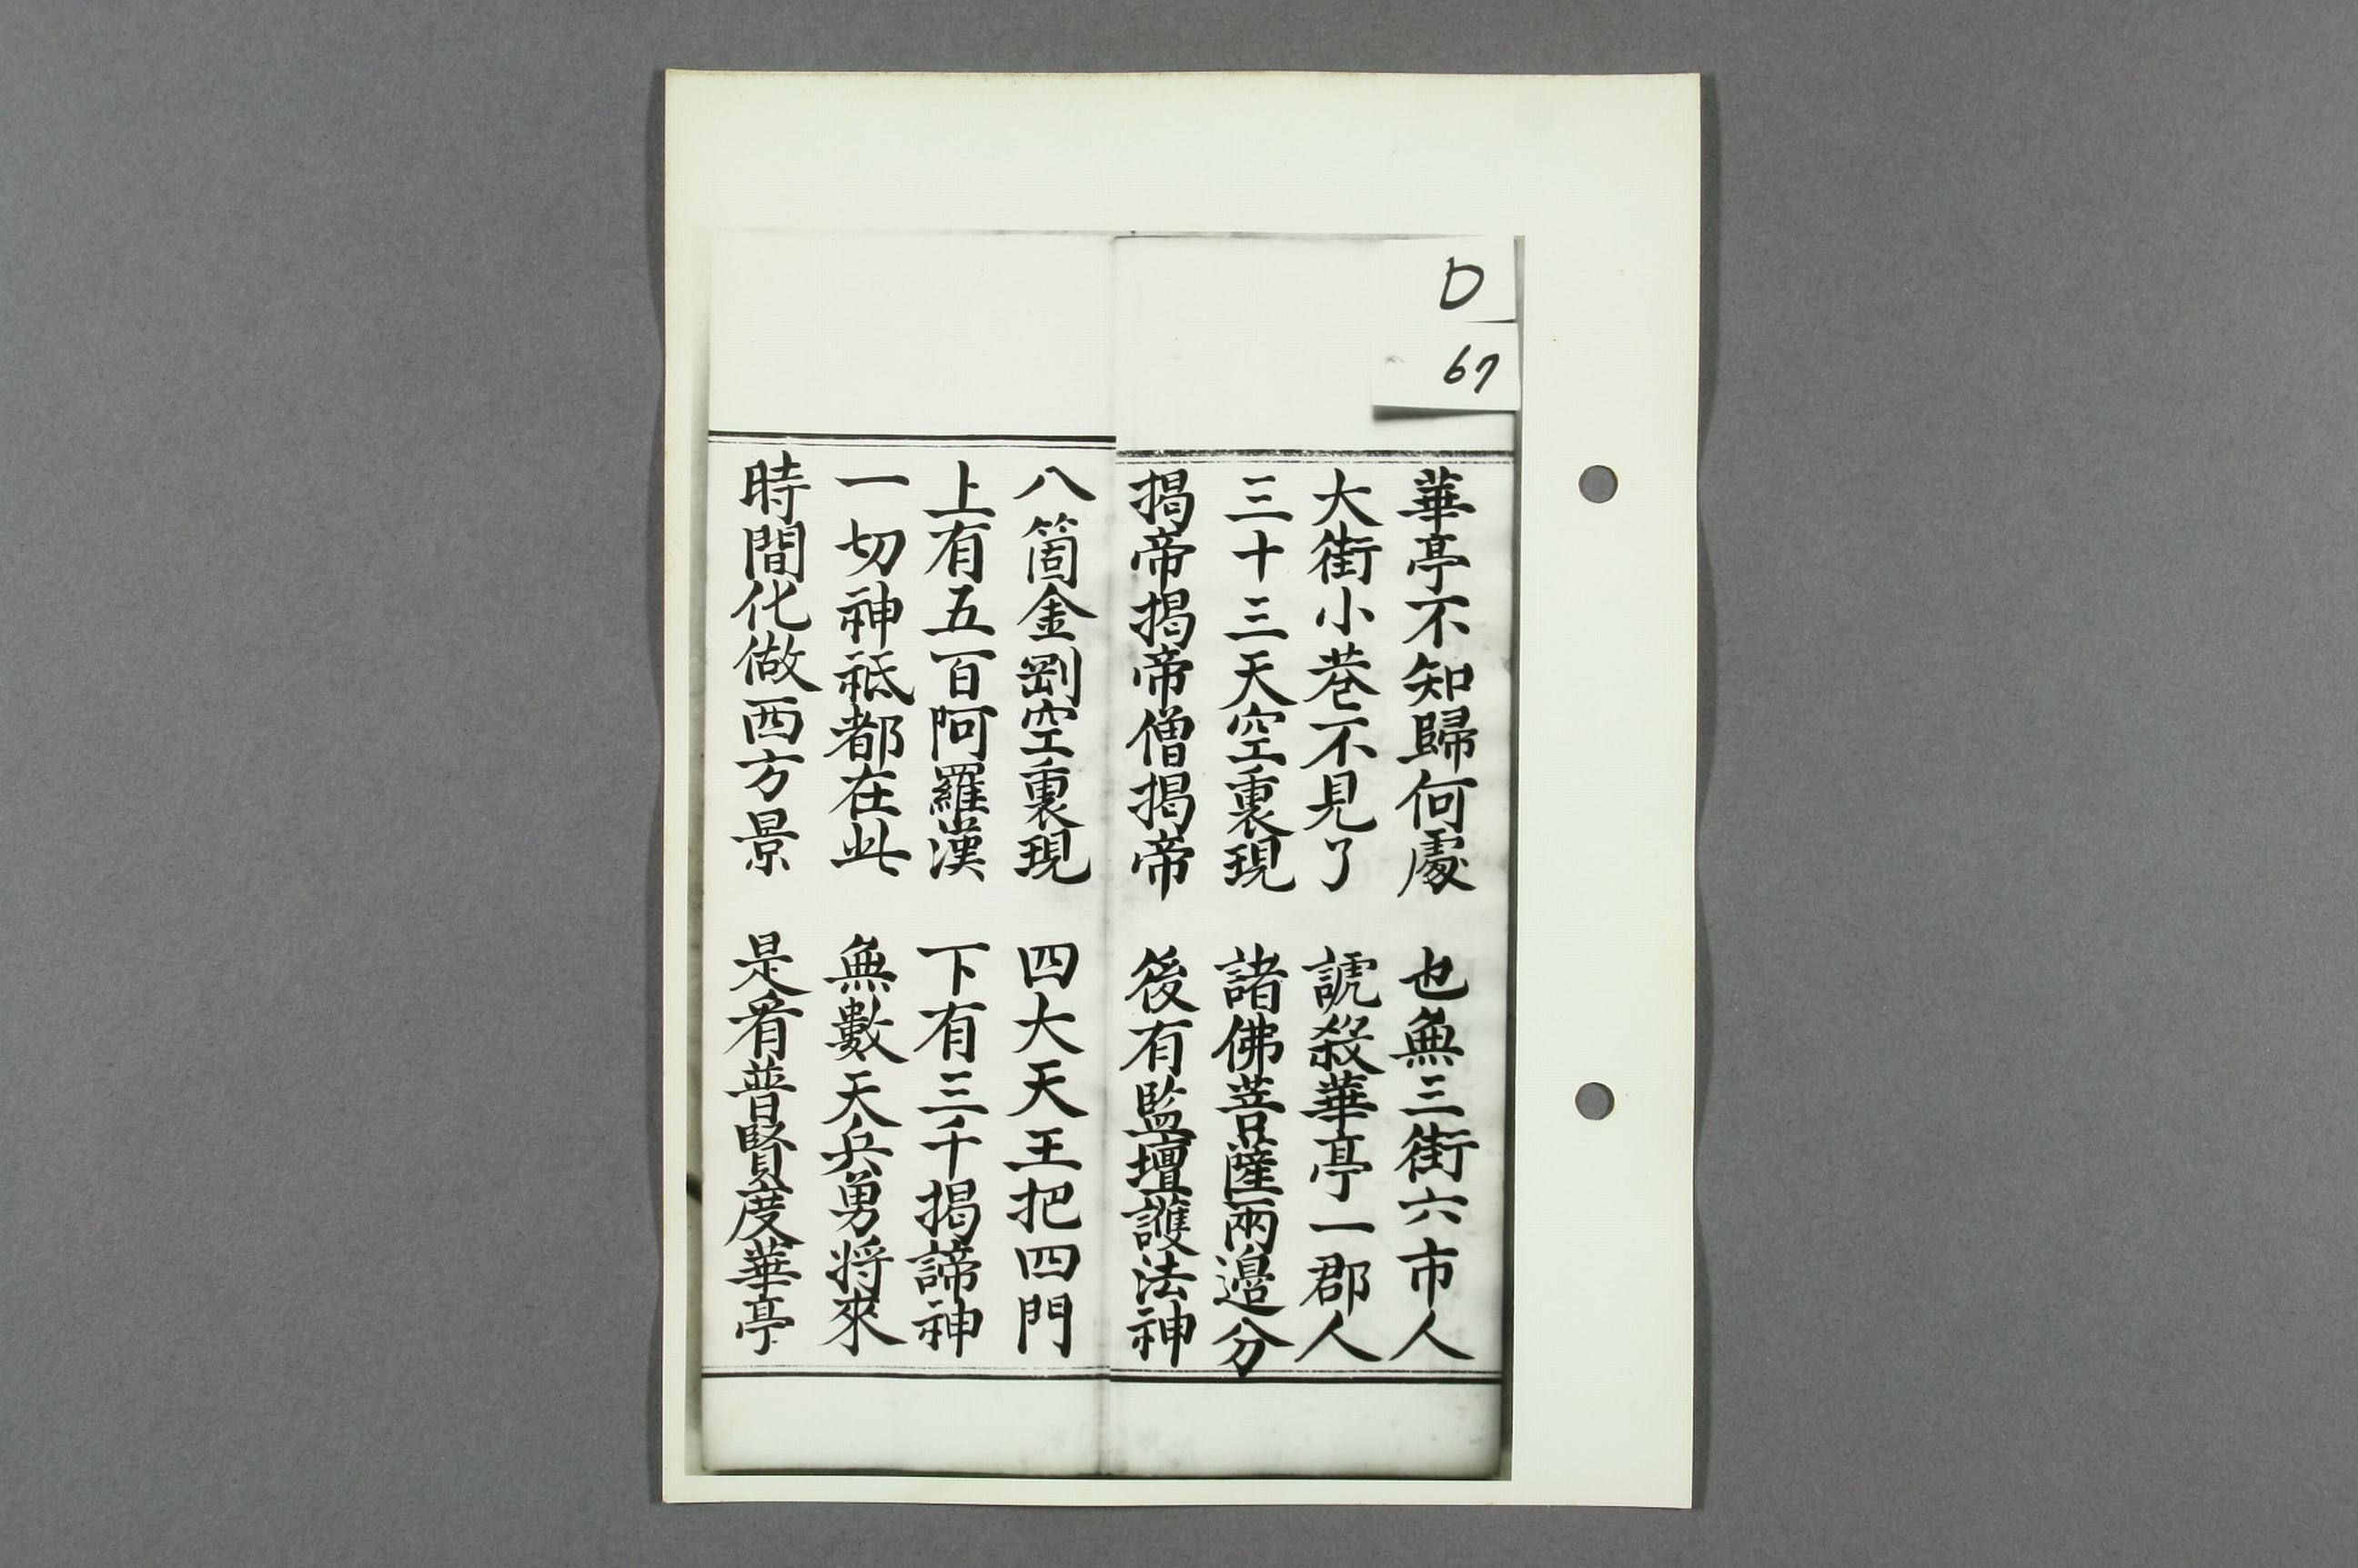 D
67
華亭不知歸何處　也無三街六市人
大街小巷不見了　諕殺華亭一郡人
三十三天空裏現　諸佛菩薩兩邊分
揭帝揭帝僧揭帝　後有監壇護法神
八箇金剛空裏現　四大天王把四門
上有五百阿羅漢　下有三千揭諦神
一切神祗都在此　無數天兵勇將來
時間化做西方景　是看普賢度華亭